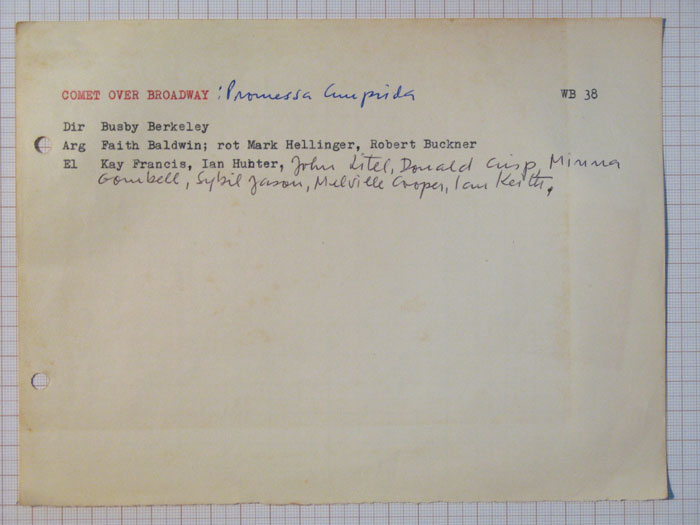 COMET OVER BROADWAY : Promessa Cumprida WB 38
Dir Busby Berkeley
Arg Faith Baldwin; rot Mark Hellinger, Robert Buckner
El Kay Francis, Ian Hunter, John Litel, Donald Crisp, Minna
Gombell, Sybil Jason, Melville Cooper, Ian Keith.